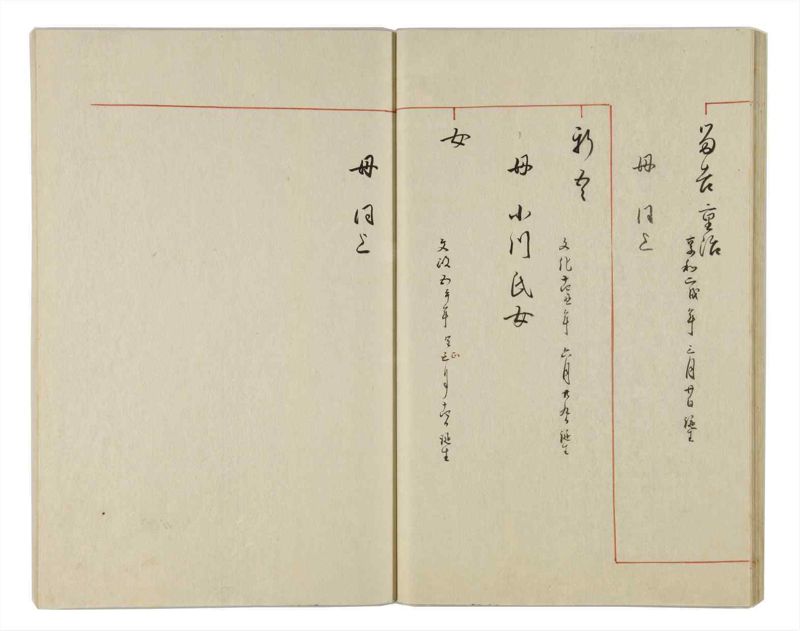 留吉 重治
享和二戌年 三月廿日誕生
母 同上
新吾
文化 年 六月廿九日誕生
母 小川氏女
女
文政五午年 正月十 日誕生
母 同上